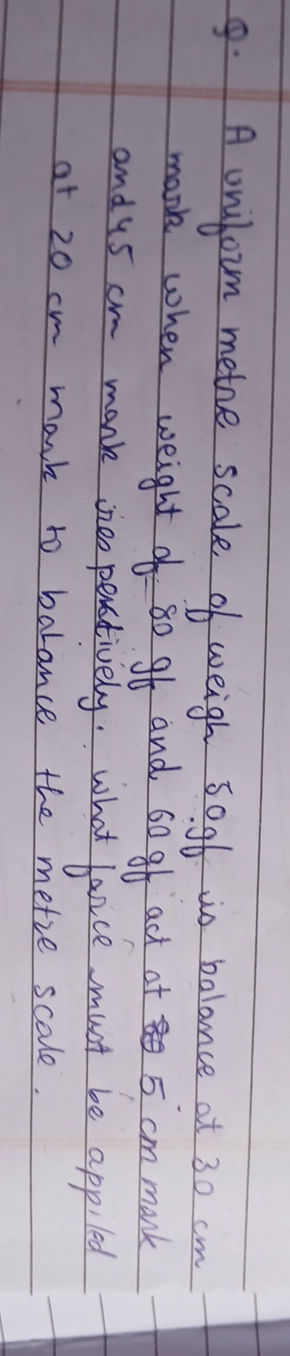 Q. A uniform metre scale of weigh 50gf is balance at 30 cm
mark when weight of 80 gf and 60 gf act at 5 cm mark
and 45 cm mark respectively. what force must be applied
at 20 cm mark to balance the metre scale.